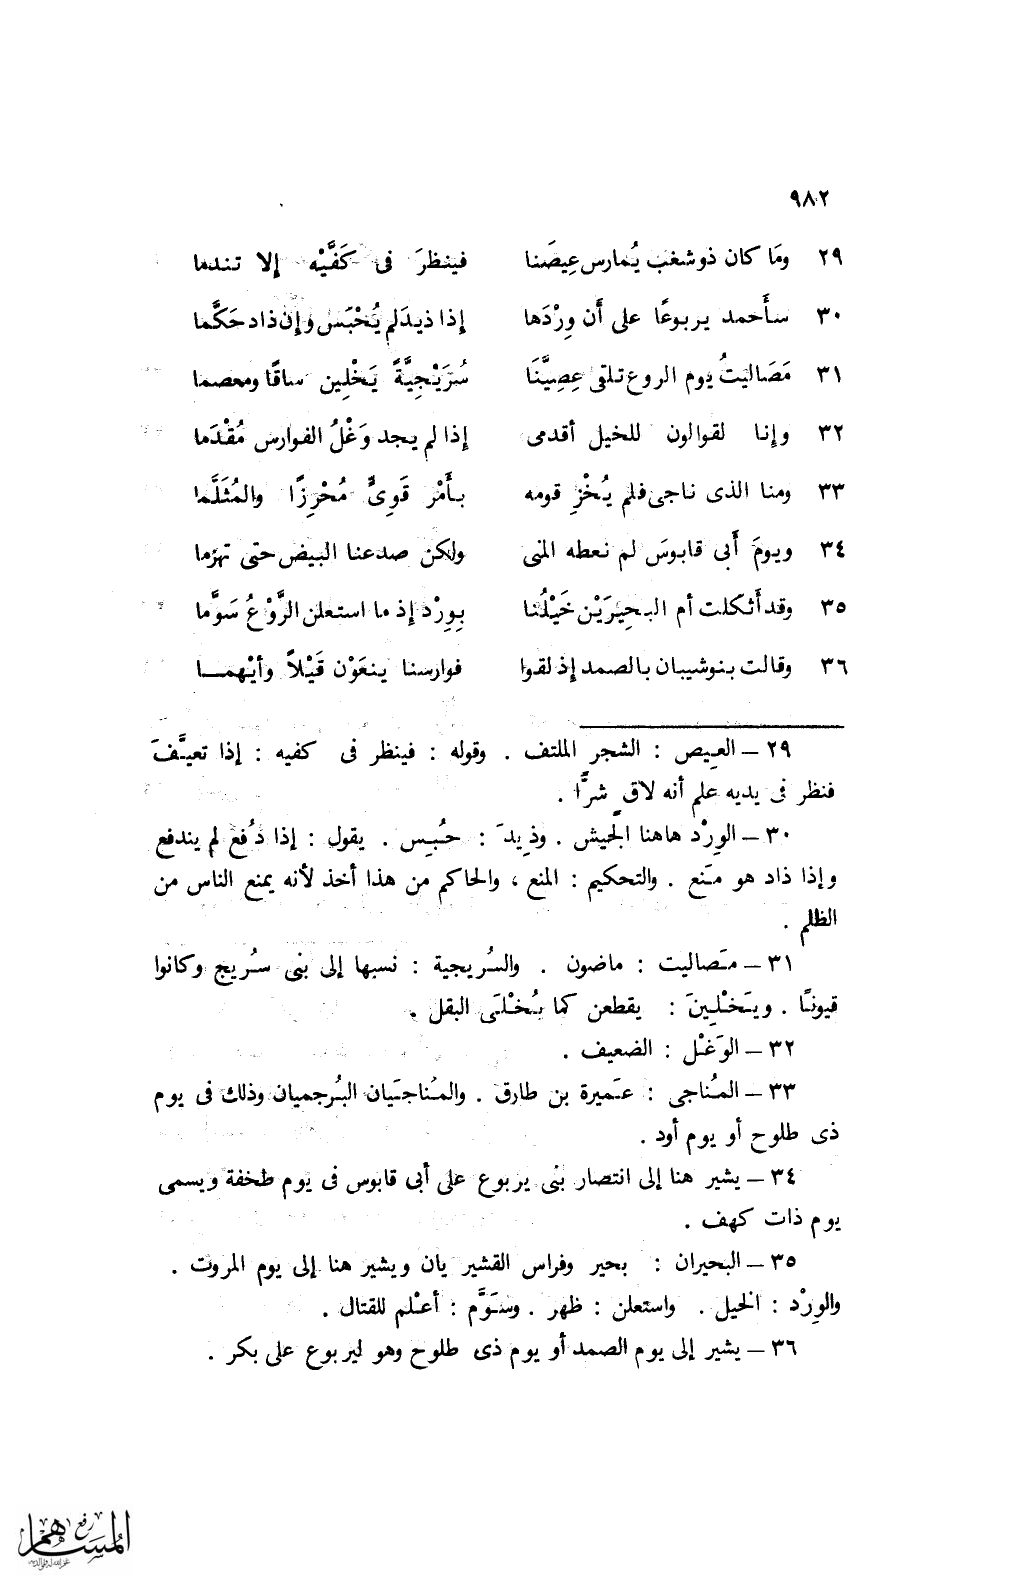 ٩٨٢
٢٩ ومَا كان ذو شغب يُمارس عِيصَنا فينظرَ فى كَفَّيْه إلا تندما
٣٠ سأَحمد يربوعًا على أَن وِرْدَها إذا ذيدَ لم يُحْبَس وإن ذاد حَكَّما
٣١ مَصَاليتُ يوم الروع تلقى عِصِيَّنَا سُرَيْجِيَّةً يَخْلِين ساقًا ومعصما
٣٢ وإنا لقوالون للخيل أقدمى إذا لم يجد وَغْلُ الفوارس مُقْدَما
٣٣ ومنا الذى ناجى فلم يُخْزِ قومه بأَمْر قَوِىٍّ مُحْرِزًا والمُثَلَّما
٣٤ ويومَ أَبى قابوسَ لم نعطه المنى ولكن صدعنا البيض حتى تهزما
٣٥ وقد أَثكلت أم البحِيرَيْن خَيْلُنا بِوِرْد إذ ما استعلن الرَّوْعُ سَوَّما
٣٦ وقالت بنو شيبان بالصمد إذ لقوا فوارسنا ينعَوْن قَيْلاً وأيْهما
٢٩ – العيص : الشجر الملتف . وقوله : فينظر فى كفيه : إذا تعيَّفَ
فنظر فى يديه علم أنه لاقٍ شرًّا .
٣٠ – الوِرْد هاهنا الجيش . وذِيدَ : حُبِس . يقول : إذا دُفع لم يندفع
وإذا ذاد هو مَنع . والتحكيم : المنع ، والحاكم من هذا أخذ لأنه يمنع الناس من
الظلم .
٣١ – مَصاليت : ماضون . والسُريجية : نسبها إلى بنى سُريج وكانوا
قيونًا . ويَخْلِينَ : يقطعن كما يُخْلَى البقل .
٣٢ – الوَغْل : الضعيف .
٣٣ – المُناجى : عَميرة بن طارق . والمُناجَيان البُرجميان وذلك فى يوم
ذى طلوح أو يوم أود .
٣٤ – يشير هنا إلى انتصار بنى يربوع على أبى قابوس فى يوم طخفة ويسمى
يوم ذات كهف .
٣٥ – البحيران : بحير وفراس القشير يان ويشير هنا إلى يوم المروت .
والوِرْد : الخيل . واستعلن : ظهر . وسَوَّم : أعْلم للقتال .
٣٦ – يشير إلى يوم الصمد أو يوم ذى طلوح وهو ليربوع على بكر .